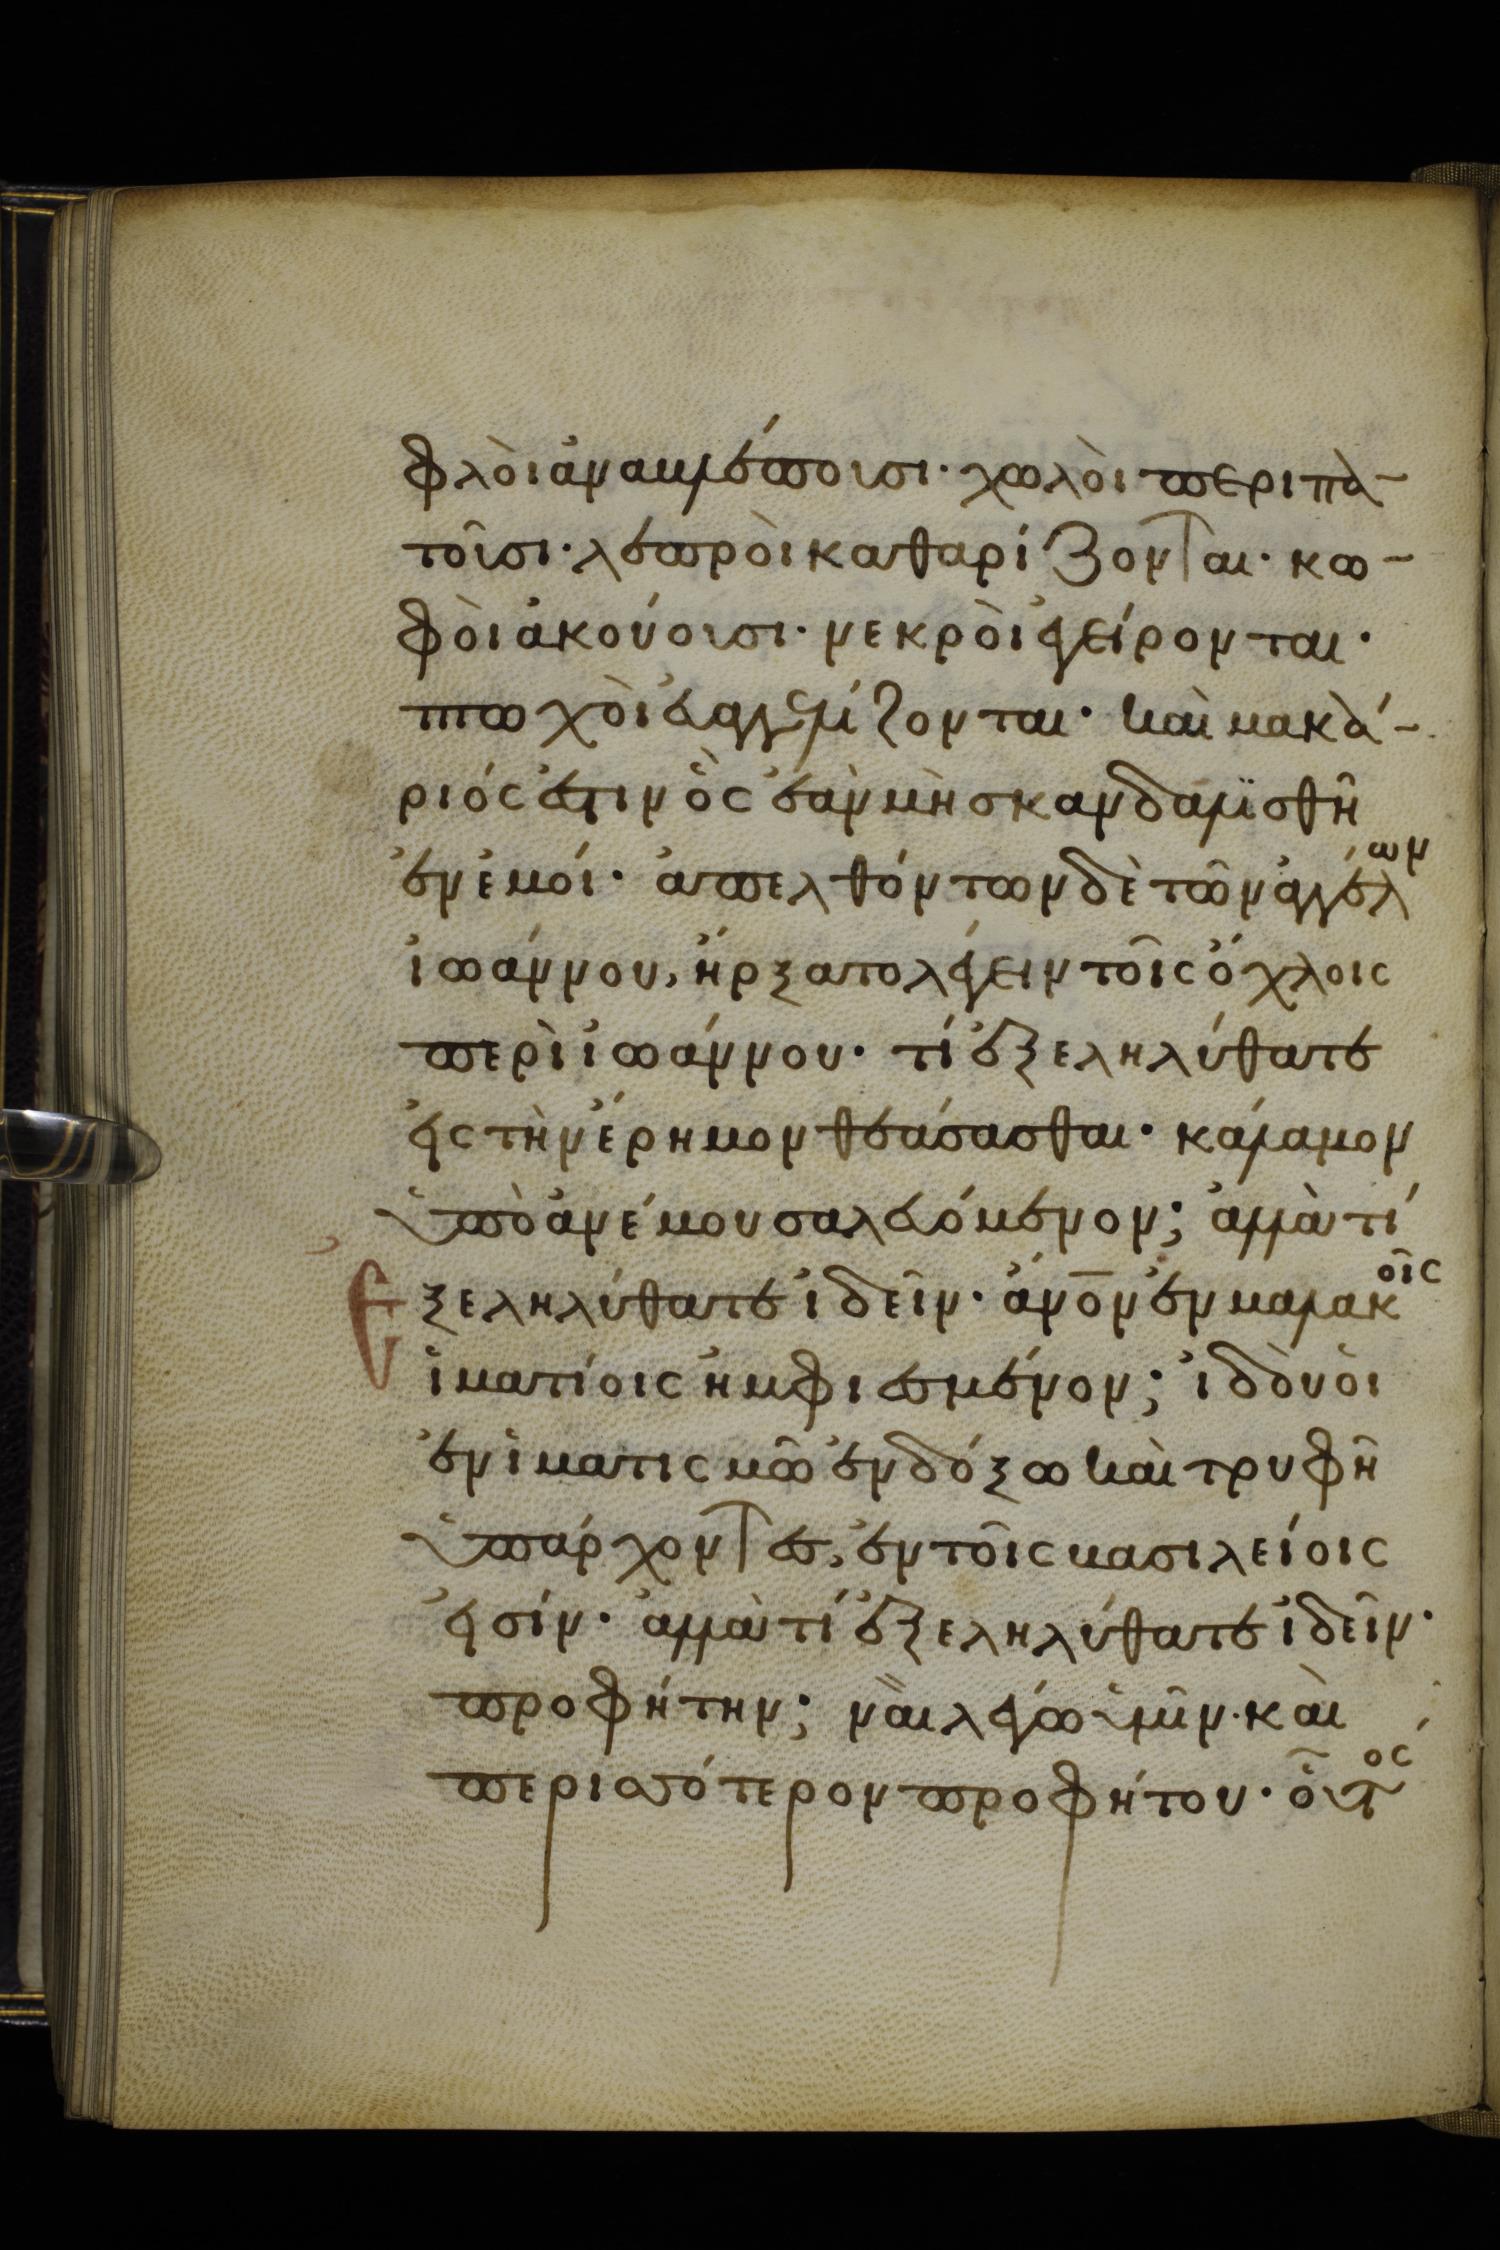 φλὸι ἀναβλέπουσι· χωλὸι περιπα-
τοῦσι· λεπρὸι καθαρίζονται· κω-
φὸι ἀκούουσι· νεκρὸι ἐγείρονται·
πτωχὸι εὐαγγελίζονται· καὶ μακά-
ριός ἐστιν ὃς ἐὰν μὴ σκανδαλϊσθῆ
ἐν ἐμοί· ἀπελθόντων δὲ τῶν ἀγγέλων
ἰωάννου, ἤρξατο λέγειν τοῖς ὄχλοις
περὶ ἰωάννου· τί ἐξεληλύθατε
εἰς τὴν ἔρημον θεάσασθαι· κάλαμον
ὑπὸ ἀνέμου σαλευόμενον; ἀλλὰ τί
ἐξεληλύθατε ἰδεῖν· ἄν̅ο̅ν ἐν μαλακοῖς
ἱματίοις ἠμφιεσμένον; ἰδοὺ ὁι
ἐν ἱματισμῶ ἐνδόξω καὶ τρυφῆ
ὑπάρχοντες, ἐν τοῖς βασιλείοις
εἰσίν· ἀλλὰ τί ἐξεληλύθατε ἰδεῖν·
προφήτην; ναὶ λέγω ὑμῖν· καὶ
περισσότερον προφήτου· οὗτος